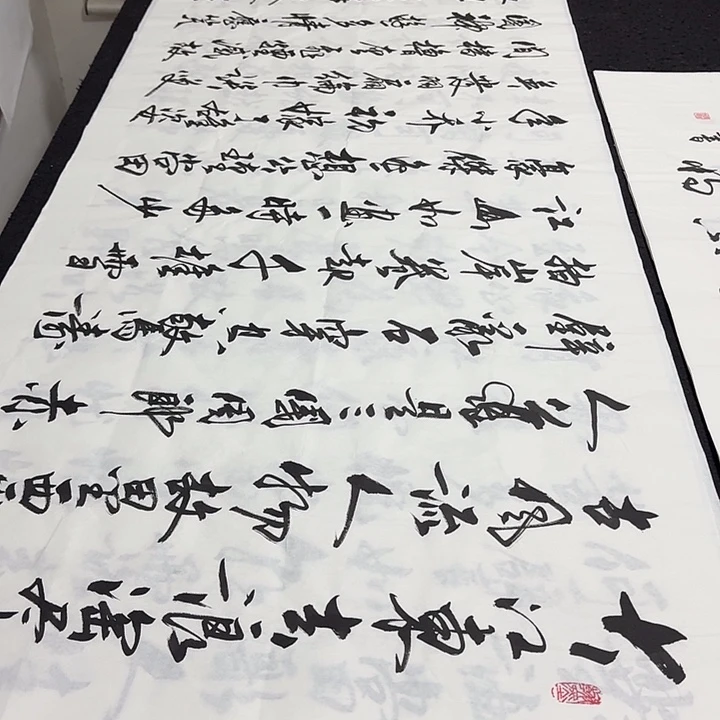 大江東去浪淘尽
古風流人物故壘西
人道是三國周郎赤
壁亂石穿空驚濤
拍岸捲起千堆雪
江山如畫一時多少
豪傑遙想公瑾當
年小喬初嫁了雄姿
英發羽扇綸巾談笑
間檣櫓灰飛煙滅故
國神遊多情應笑